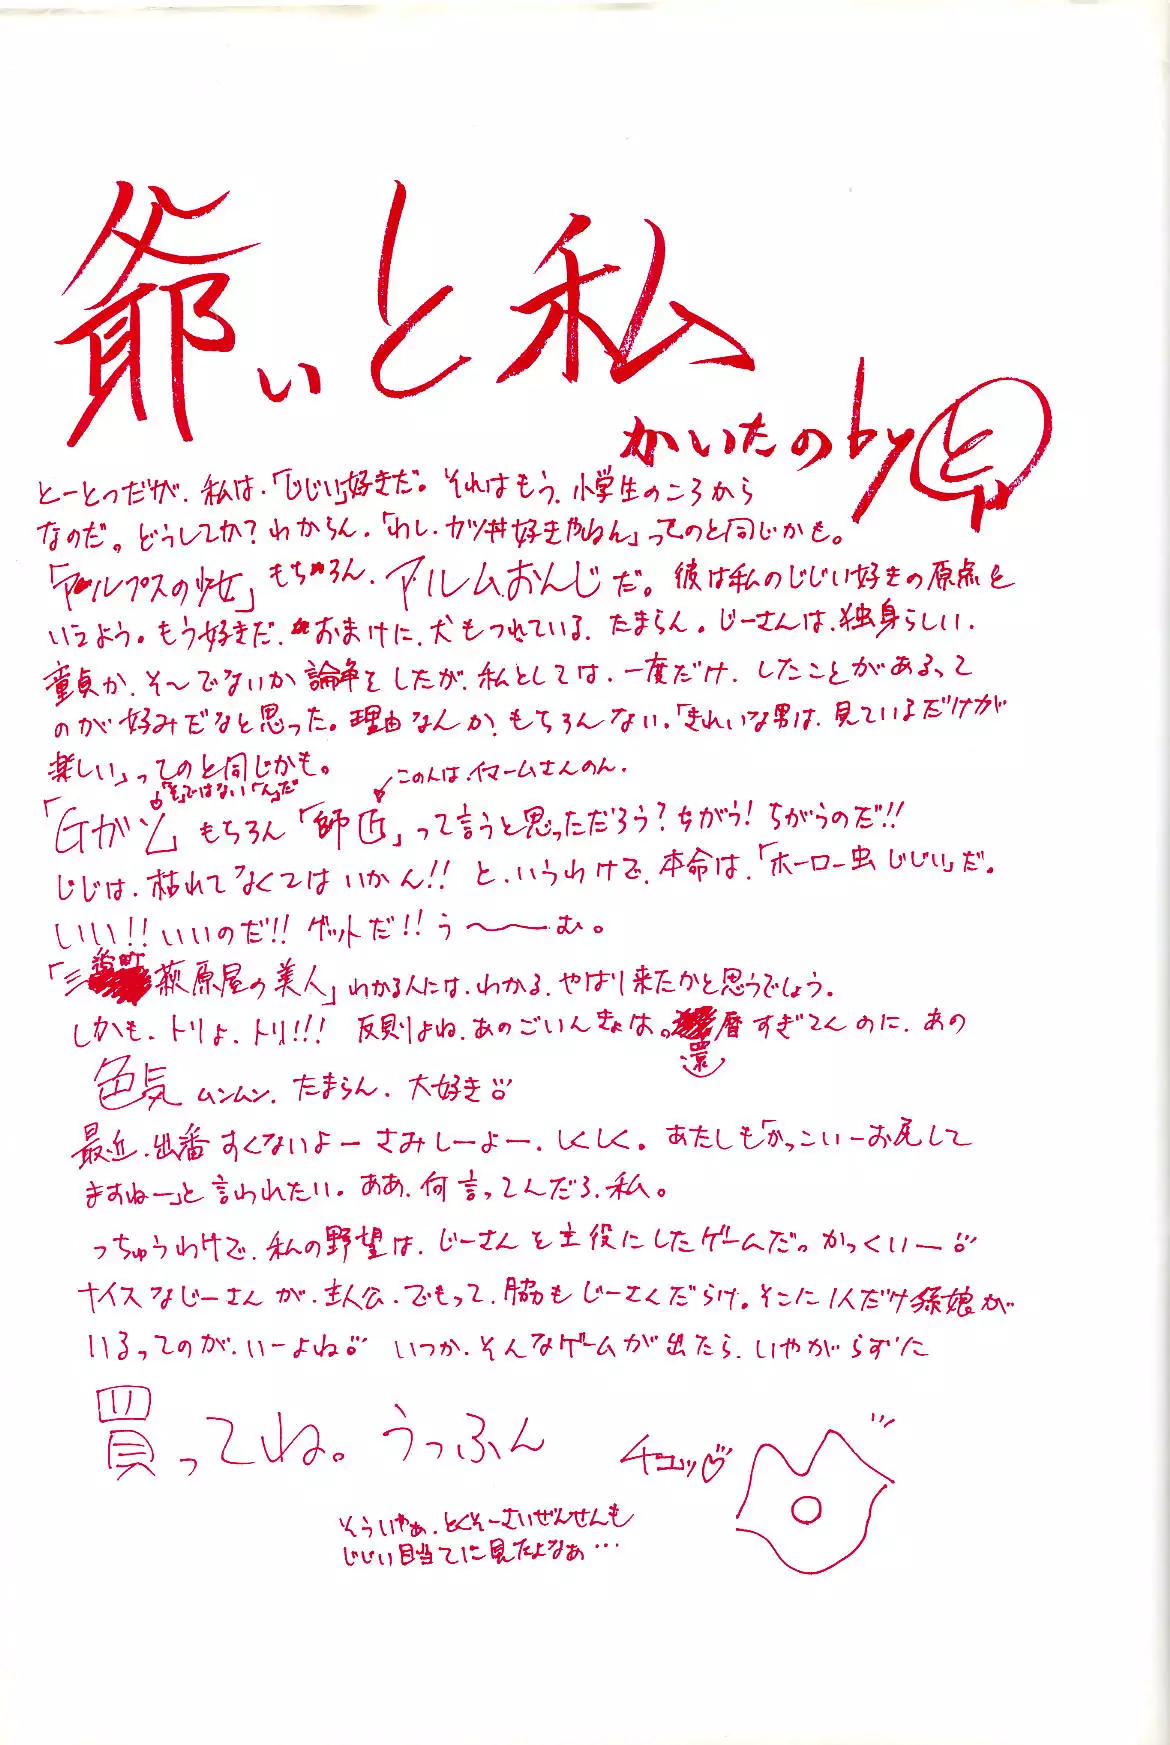 爺ぃと私
かいたの by と
とーとつだが、私は、「じじい」好きだ。それはもう、小学生のころから
なのだ。どうしてか？わからん、「わし、カツ丼好きやねん」ってのと同じかも。
「アルプスの少女」もちろん、アルムおんじだ。彼は私のじじい好きの原点と
いえよう。もう好きだ、おまけに、犬もつれている、たまらん。じーさんは、独身らしい、
童貞か、そ〜でないか論争をしたが、私としては、一度だけ、したことがあるって
のが好みだなと思った。理由なんか、もちろんない、「きれいな男は、見ているだけが
楽しい」ってのと同じかも。
「そ」ではない「ん」だ
このんは、イマームさんのん、
「Gガン」もちろん「師匠」って言うと思っただろう？ちがう！ちがうのだ!!
じじは、枯れてなくてはいかん!!と、いうわけで、本命は、「ホーロー虫じじい」だ。
いい!!いいのだ!!ゲットだ!!う〜〜む。
「三番町萩原屋の美人」わかる人には、わかる、やはり来たかと思うでしょう。
しかも、トリよ、トリ!!!反則よね、あのごいんきょは。還暦すぎてんのに、あの
色気ムンムン、たまらん、大好き
最近、出番すくないよーさみしーよー、しくしく。あたしも「かっこいーお尻して
ますねー」と言われたい。ああ、何言ってんだろ、私。
っちゅうわけで、私の野望は、じーさんを主役にしたゲームだ。かっくいー
ナイスなじーさんが、主人公、でもって、脇もじーさんだらけ。そこに1人だけ孫娘が
いるってのが、いーよね いつか、そんなゲームが出たら、いやがらずに
買ってね。うっふん
チュッ♡
そういやぁ、とくそーさいぜんせんも
じじい目当てに見たよなぁ…